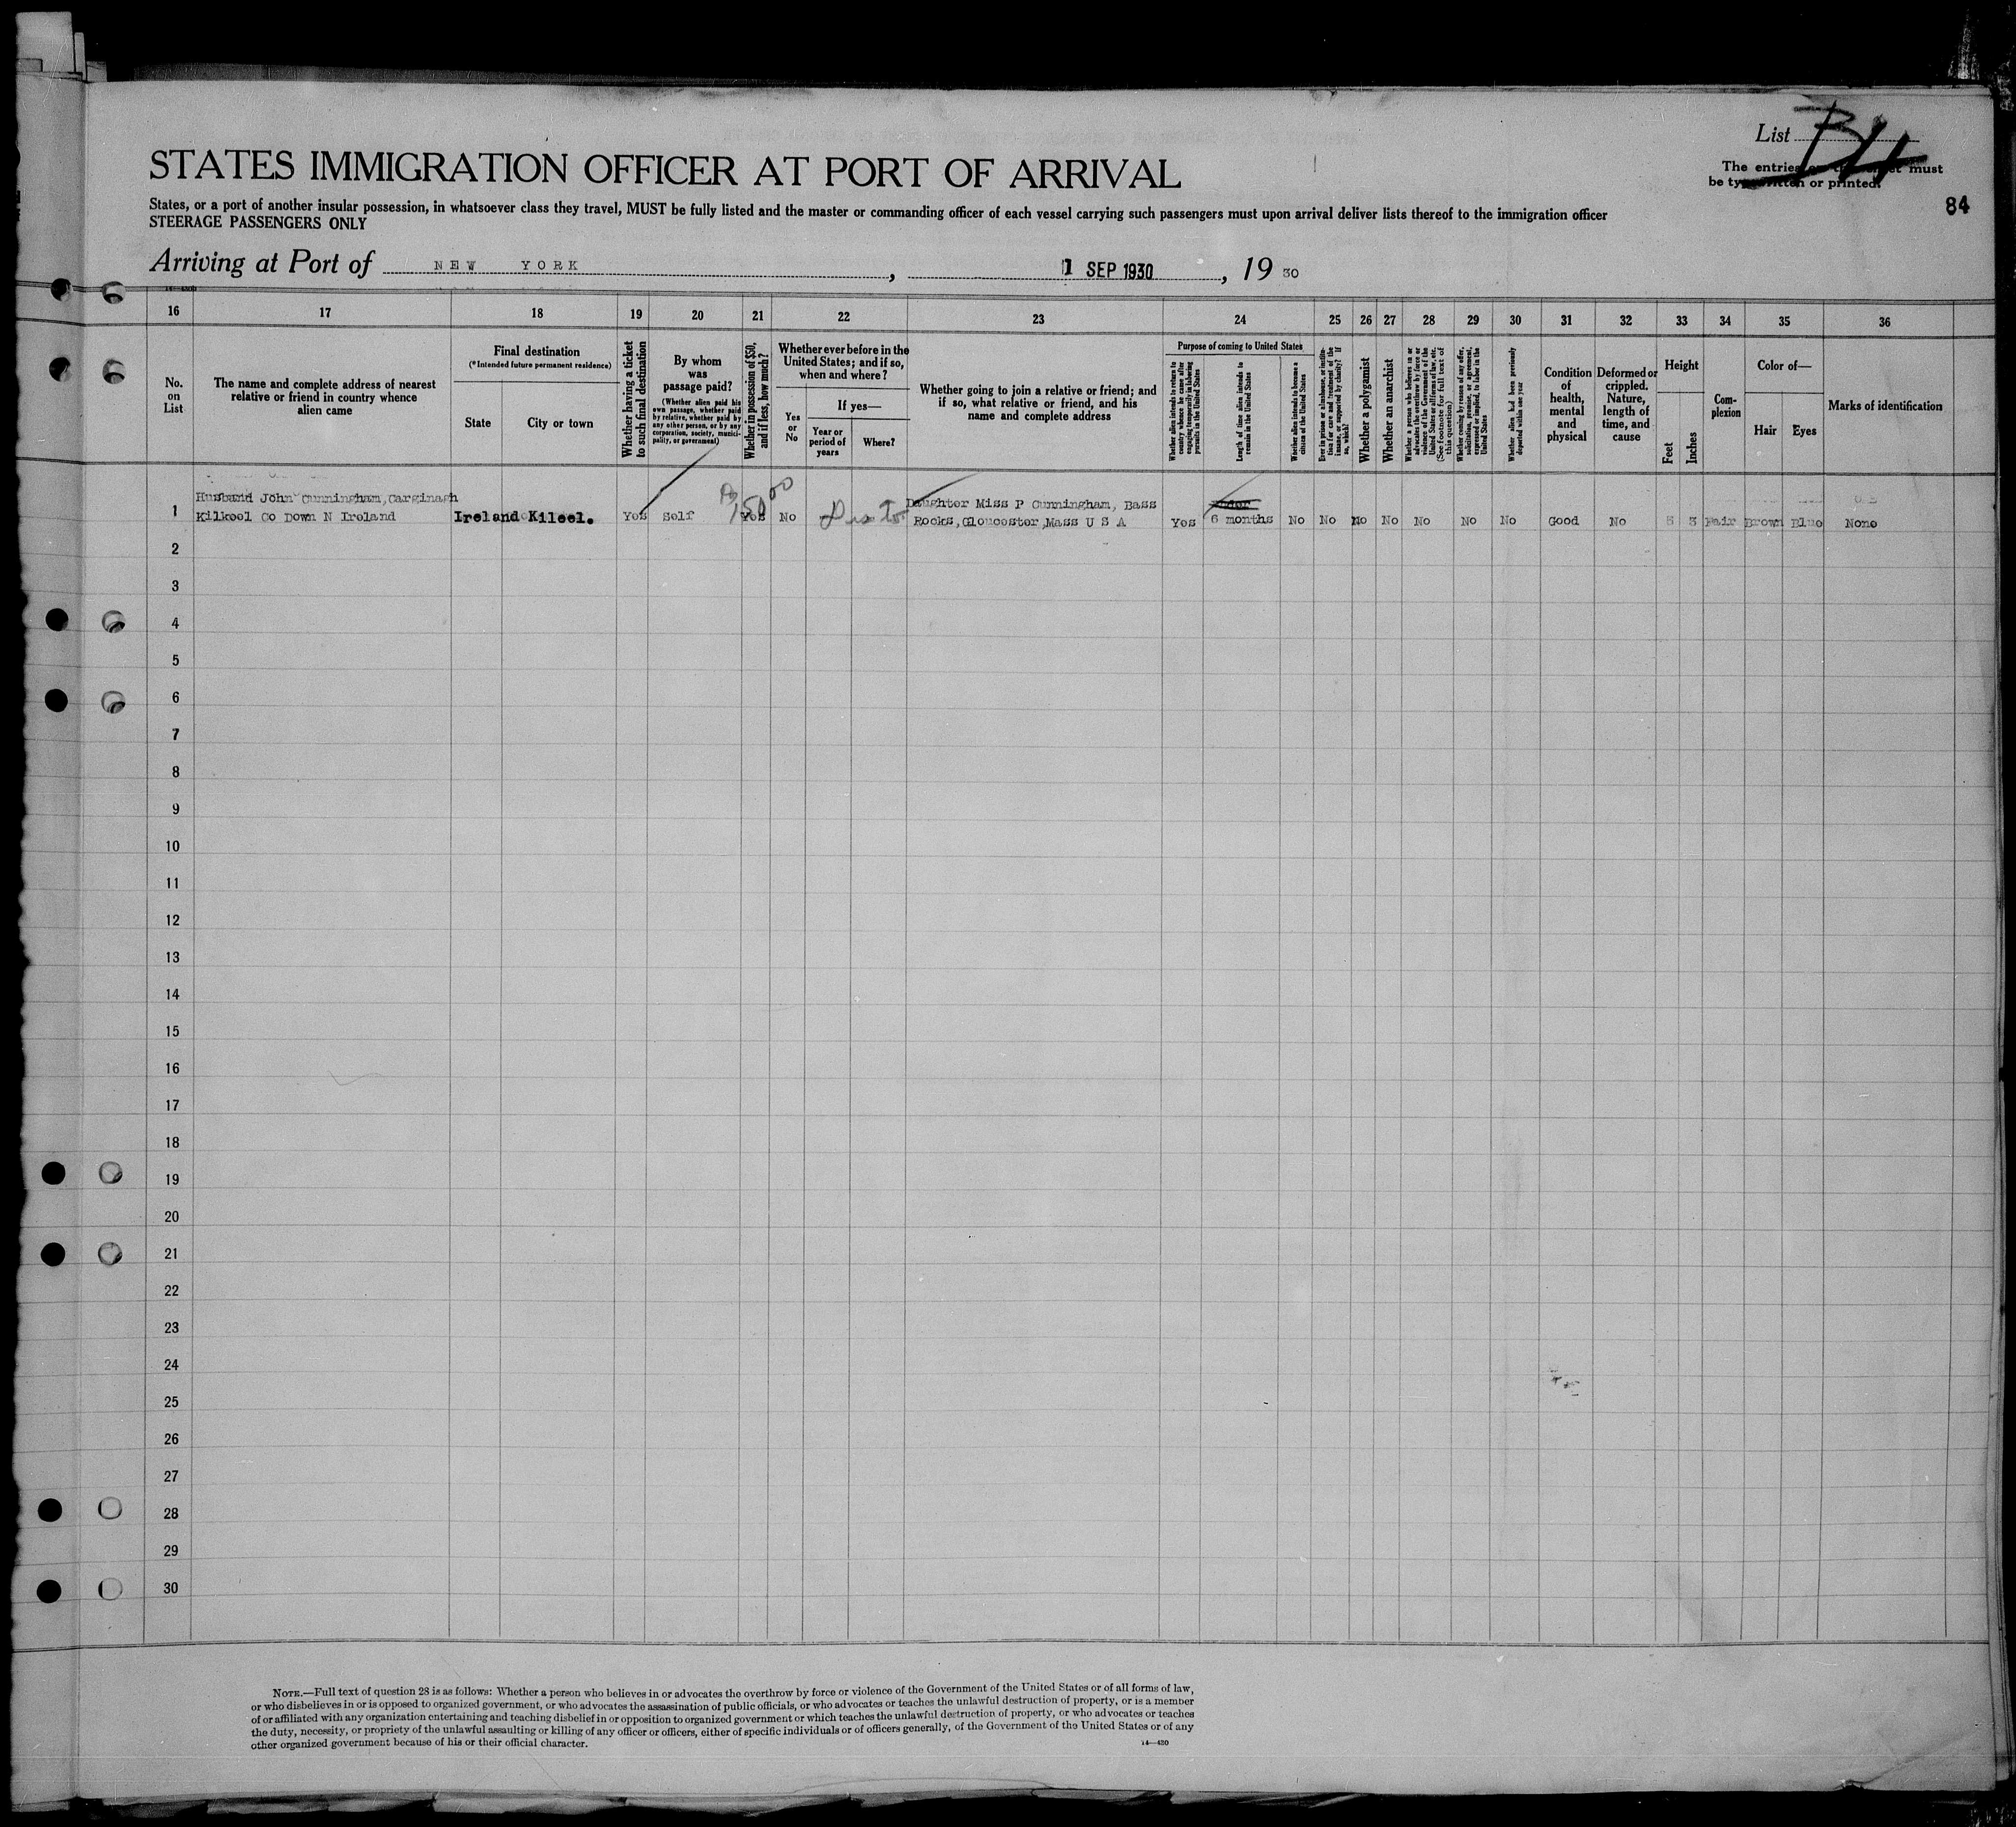 List
The entries must
be typewritten or printed.
84
STATES IMMIGRATION OFFICER AT PORT OF ARRIVAL
States, or a port of another insular possession, in whatsoever class they travel, MUST be fully listed and the master or commanding officer of each vessel carrying such passengers must upon arrival deliver lists thereof to the immigration officer
STEERAGE PASSENGERS ONLY
Arriving at Port of NEW YORK , 1 SEP 1930 , 19 30
16 17 18 19 20 21 22 23 24 25 26 27 28 29 30 31 32 33 34 35 36
No.
on
List
The name and complete address of nearest
relative or friend in country whence
alien came
Final destination
(*Intended future permanent residence)
State
City or town
Whether having a ticket
to such final destination
By whom
was
passage paid?
(Whether alien paid his
own passage, whether paid
by relative, whether paid by
any other person, or by any
corporation, society, munici-
pality, or government)
Whether in possession of $50,
and if less, how much?
Whether ever before in the
United States; and if so,
when and where?
Yes
or
No
If yes—
Year or
period of
years
Where?
Whether going to join a relative or friend; and
if so, what relative or friend, and his
name and complete address
Purpose of coming to United States
Whether alien intends to return to
country whence he came after
engaging temporarily in laboring
pursuits in the United States
Length of time alien intends to
remain in the United States
Whether alien intends to become a
citizen of the United States
Ever in prison or almshouse, or institu-
tion for care and treatment of the
insane, or supported by charity? If
so, which?
Whether a polygamist
Whether an anarchist
Whether a person who believes in or
advocates the overthrow by force or
violence of the Government of the
United States or all forms of law, etc.
(See footnote for full text of
this question)
Whether coming by reason of any offer,
solicitation, promise, or agreement,
expressed or implied, to labor in the
United States
Whether alien had been previously
deported within one year
Condition
of
health,
mental
and
physical
Deformed or
crippled.
Nature,
length of
time, and
cause
Height
Feet
Inches
Com-
plexion
Color of—
Hair
Eyes
Marks of identification
Husband John Cunningham, Carginagh
Daughter Miss P Cunningham, Bass
1 Kilkeel Co Down N Ireland Ireland Kileel. Yes Self Yes No Rocks,Gloucester,Mass U S A Yes 6 months No No No No No No No Good No 5 3 Fair Brown Blue None
2
3
4
5
6
7
8
9
10
11
12
13
14
15
16
17
18
19
20
21
22
23
24
25
26
27
28
29
30
NOTE.—Full text of question 28 is as follows: Whether a person who believes in or advocates the overthrow by force or violence of the Government of the United States or of all forms of law,
or who disbelieves in or is opposed to organized government, or who advocates the assassination of public officials, or who advocates or teaches the unlawful destruction of property, or is a member
of or affiliated with any organization entertaining and teaching disbelief in or opposition to organized government or which teaches the unlawful destruction of property, or who advocates or teaches
the duty, necessity, or propriety of the unlawful assaulting or killing of any officer or officers, either of specific individuals or of officers generally, of the Government of the United States or of any
other organized government because of his or their official character.
14—430